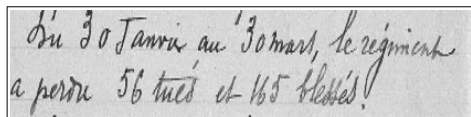 Du 30 Janvier au 30 mars, le régiment
a perdu 56 tués et 165 blessés.